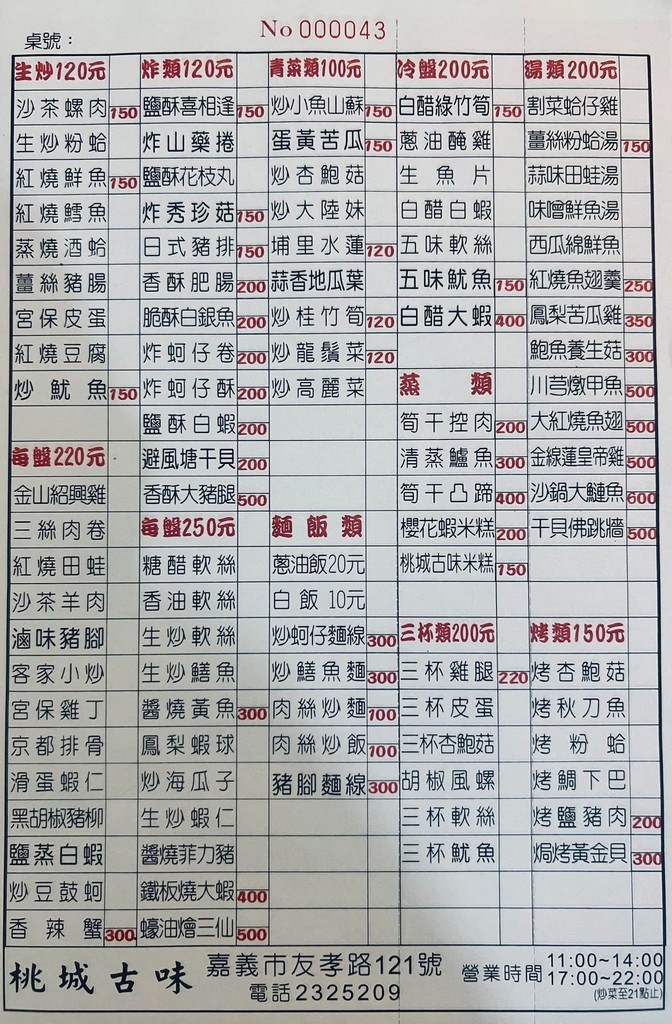 No 000043
桌號：
生炒120元
沙茶螺肉 150
生炒粉蛤
紅燒鮮魚 150
紅燒鱈魚
蒸燒酒蛤
薑絲豬腸
宮保皮蛋
紅燒豆腐
炒魷魚 150
每盤220元
金山紹興雞
三絲肉卷
紅燒田蛙
沙茶羊肉
滷味豬腳
客家小炒
宮保雞丁
京都排骨
滑蛋蝦仁
黑胡椒豬柳
鹽蒸白蝦
炒豆鼓蚵
香辣蟹 300
炸類120元
鹽酥喜相逢 150
炸山藥捲
鹽酥花枝丸
炸秀珍菇 150
日式豬排 150
香酥肥腸 200
脆酥白銀魚 200
炸蚵仔卷 200
炸蚵仔酥 200
鹽酥白蝦 200
避風塘干貝 200
香酥大豬腿 500
每盤250元
糖醋軟絲
香油軟絲
生炒軟絲
生炒鱔魚
醬燒黃魚 300
鳳梨蝦球
炒海瓜子
生炒蝦仁
醬燒菲力豬
鐵板燒大蝦 400
蠔油燴三仙 500
青菜類100元
炒小魚山蘇 150
蛋黃苦瓜 150
炒杏鮑菇
炒大陸妹
埔里水蓮 120
蒜香地瓜葉
炒桂竹筍 120
炒龍鬚菜 120
炒高麗菜
麵飯類
蔥油飯20元
白飯10元
炒蚵仔麵線 300
炒鱔魚麵 300
肉絲炒麵 100
肉絲炒飯 100
豬腳麵線 300
冷盤200元
白醋綠竹筍 150
蔥油醃雞
生魚片
白醋白蝦
五味軟絲
五味魷魚 150
白醋大蝦 400
蒸類
筍干控肉 200
清蒸鱸魚 300
筍干凸蹄 400
櫻花蝦米糕 200
桃城古味米糕 150
三杯類200元
三杯雞腿 220
三杯皮蛋
三杯杏鮑菇
胡椒風螺
三杯軟絲
三杯魷魚
湯類200元
割菜蛤仔雞
薑絲粉蛤湯 150
蒜味田蛙湯
味噌鮮魚湯
西瓜綿鮮魚
紅燒魚翅羹 250
鳳梨苦瓜雞 350
鮑魚養生菇 300
川芎燉甲魚 500
大紅燒魚翅 500
金線蓮皇帝雞 500
沙鍋大鰱魚 600
干貝佛跳牆 500
烤類150元
烤杏鮑菇
烤秋刀魚
烤粉蛤
烤鯛下巴
烤鹽豬肉 200
焗烤黃金貝 300
桃城古味
嘉義市友孝路121號
電話2325209
營業時間
11:00~14:00
17:00~22:00
(炒菜至21點止)